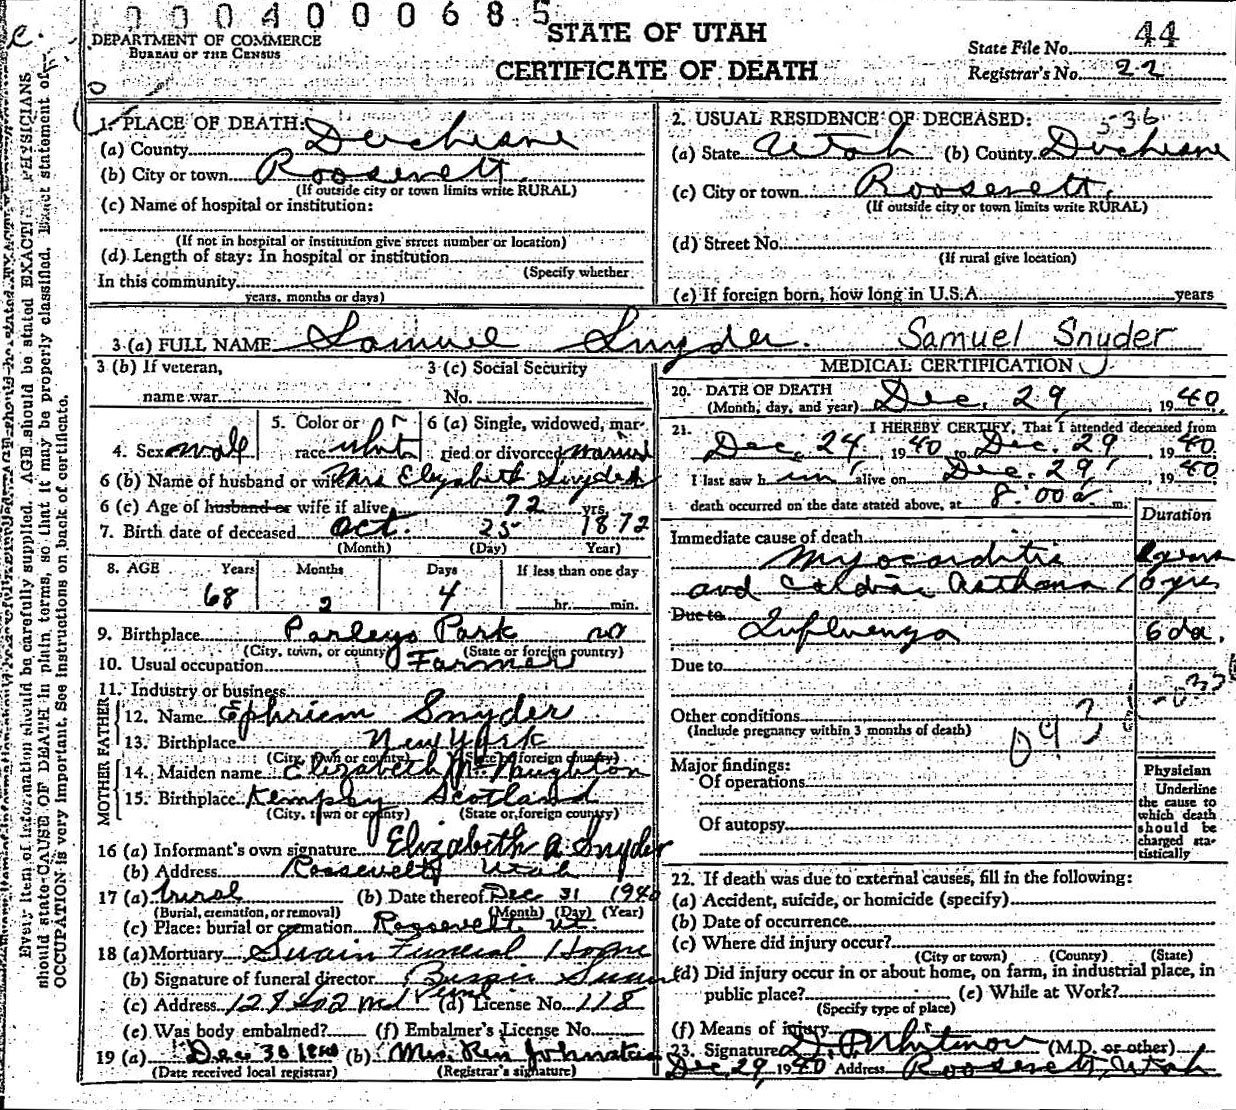 0004000685
STATE OF UTAH
CERTIFICATE OF DEATH
DEPARTMENT OF COMMERCE
BUREAU OF THE CENSUS
State File No. 44
Registrar's No. 22
1. PLACE OF DEATH:
(a) County Duchesne
(b) City or town Roosevelt
(If outside city or town limits write RURAL)
(c) Name of hospital or institution:
(If not in hospital or institution give street number or location)
(d) Length of stay: In hospital or institution
(Specify whether
In this community
years, months or days)
2. USUAL RESIDENCE OF DECEASED: 536
(a) State Utah (b) County Duchesne
(c) City or town Roosevelt
(If outside city or town limits write RURAL)
(d) Street No.
(If rural give location)
(e) If foreign born, how long in U.S.A. years
3 (a) FULL NAME Samuel Snyder. Samuel Snyder
3 (b) If veteran,
name war
3 (c) Social Security
No.
4. Sex male
5. Color or
race whit
6 (a) Single, widowed, mar-
ried or divorced married
6 (b) Name of husband or wife Mrs Elizabeth Snyder
6 (c) Age of husband or wife if alive 72 yrs.
7. Birth date of deceased Oct. 25 1872
(Month) (Day) Year)
8. AGE Years Months Days If less than one day
68 2 4 hr. min.
9. Birthplace Parleys Park
(City, town, or county) (State or foreign country)
10. Usual occupation Farmer
11. Industry or business
FATHER
12. Name Ephriem Snyder
13. Birthplace New York
(City, town or county) (State or foreign country)
MOTHER
14. Maiden name Elizabeth McNaughton
15. Birthplace Scotland
(City, town or county) (State or foreign country)
16 (a) Informant's own signature Elizabeth A Snyder
(b) Address Roosevelt Utah
17 (a) burial (b) Date thereof Dec 31 1940
(Burial, cremation, or removal) (Month) (Day) (Year)
(c) Place: burial or cremation Roosevelt Ut.
18 (a) Mortuary Swain Funeral Home
(b) Signature of funeral director
(c) Address (d) License No. 118
(e) Was body embalmed? (f) Embalmer's License No.
19 (a) Dec 30 1940 (b) Mrs. Johnston
(Date received local registrar) (Registrar's signature)
MEDICAL CERTIFICATION
20. DATE OF DEATH
(Month, day, and year) Dec. 29 1940
21. I HEREBY CERTIFY, That I attended deceased from
Dec. 24, 1940 to Dec. 29, 1940
I last saw him alive on Dec. 29, 1940
death occurred on the date stated above, at 8:00 a m.
Duration
Immediate cause of death
Myocarditis years
and Asthma 6 yrs
Due to
Influenza 6 da.
Due to
Other conditions
(Include pregnancy within 3 months of death)
Major findings:
Of operations
Of autopsy
Physician
Underline
the cause to
which death
should be
charged sta-
tistically
22. If death was due to external causes, fill in the following:
(a) Accident, suicide, or homicide (specify)
(b) Date of occurrence
(c) Where did injury occur?
(City or town) (County) (State)
(d) Did injury occur in or about home, on farm, in industrial place, in
public place? (e) While at Work?
(Specify type of place)
(f) Means of injury
23. Signature (M.D. or other)
Dec. 29, 1940 Address Roosevelt, Utah
Every item of information should be carefully supplied. AGE should be stated EXACTLY. PHYSICIANS
should state CAUSE OF DEATH in plain terms, so that it may be properly classified. Exact statement of
OCCUPATION is very important. See instructions on back of certificate.